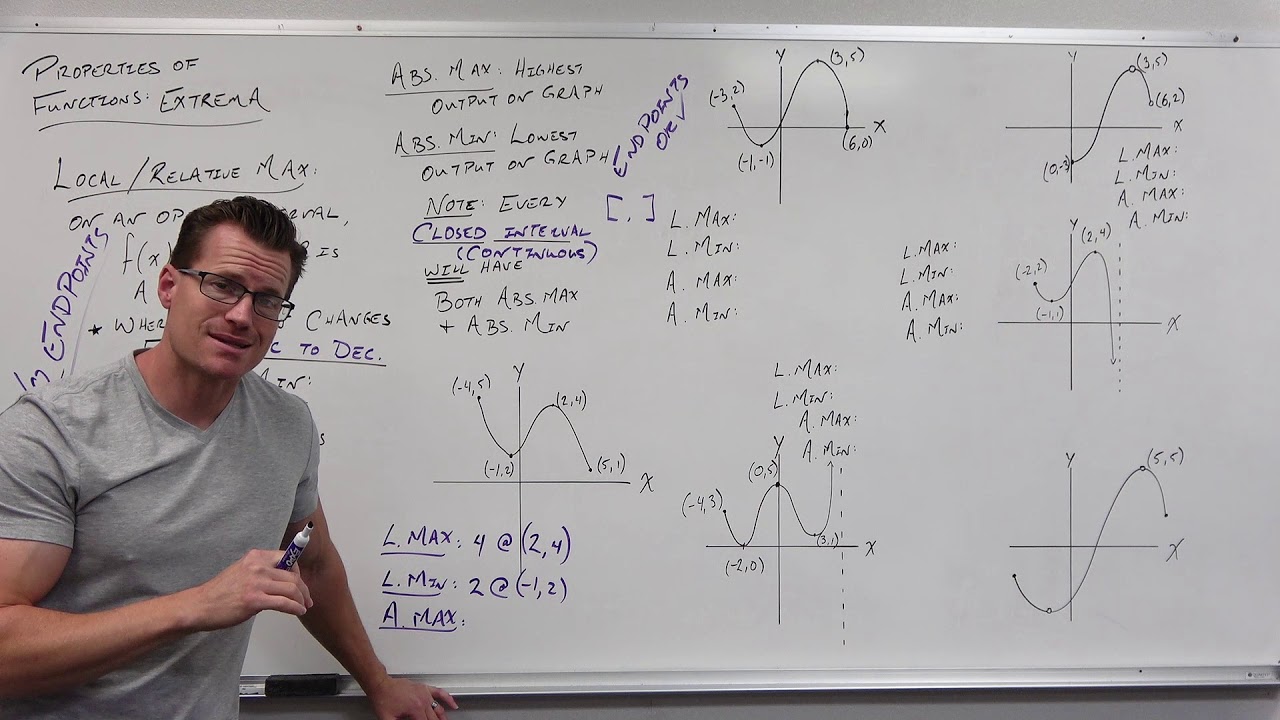 PROPERTIES OF
FUNCTIONS: EXTREMA
LOCAL/RELATIVE MAX:
ON AN
f(x)
IS
A
* WHERE CHANGES
TO DEC.
ENDPOINTS
ABS. MAX: HIGHEST
OUTPUT ON GRAPH
ABS. MIN: LOWEST
OUTPUT ON GRAPH
NOTE: EVERY
CLOSED INTERVAL
(CONTINUOUS)
WILL HAVE
BOTH ABS. MAX
+ ABS. MIN
ENDPOINTS
OR
[ , ]
Y
(-4,5)
(2,4)
(-1,2)
(5,1)
X
L.MAX: 4 @ (2,4)
L.MIN: 2 @ (-1,2)
A.MAX:
Y
(3,5)
(-3,2)
X
(-1,-1)
(6,0)
L.MAX:
L.MIN:
A.MAX:
A.MIN:
L.MAX:
L.MIN:
A.MAX:
A.MIN:
Y
(0,5)
(-4,3)
(3,1)
X
(-2,0)
Y
(3,5)
(6,2)
X
(0,-3)
L.MAX:
L.MIN:
A.MAX:
A.MIN:
L.MAX:
L.MIN:
A.MAX:
A.MIN:
Y
(2,4)
(-2,2)
(-1,1)
X
Y
(5,5)
X
EXPO